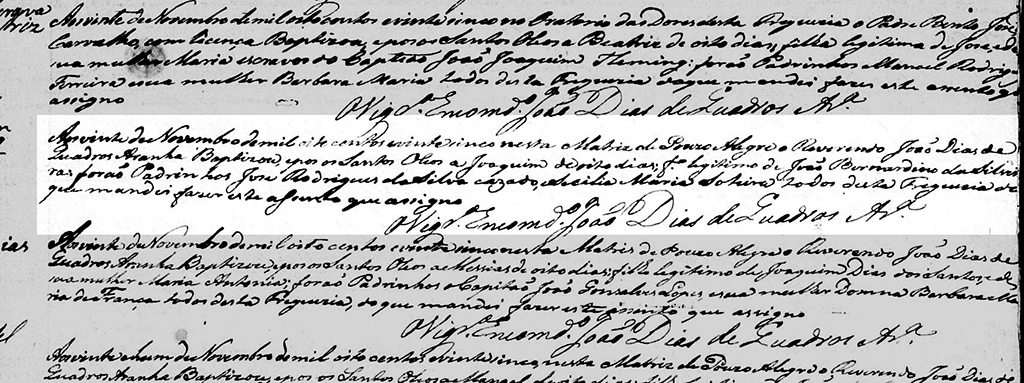 Aos vinte de Novembro de mil oito centos e vinte cinco no Oratorio das Dores desta Freguezia o Padre Bento José
Carvalho, com licença Baptizou, e pos os Santos Oleos a Beatriz de oito dias, filha legitima de José, e de
sua mulher Maria escravos do Capitão João Joaquim Fleming: forão Padrinhos Manoel Rodrigues
Ferreira e sua mulher Barbara Maria todos desta Freguezia do que mandei fazer este assento que
assigno
O Vigr.º Encomd.º João Dias de Quadros Ar.ª
Aos vinte de Novembro de mil oito centos e vinte cinco nesta Matriz de Pouzo Alegre o Reverendo João Dias de
Quadros Aranha Baptizou, e pos os Santos Oleos a Joaquim de oito dias; f.º legitimo de João Bernardino da Silvei
ra: forão Padrinhos José Rodrigues da Silva cazado, e Cecilia Maria Solteira todos desta Freguezia do
que mandei fazer este assento que assigno
O Vigr.º Encomd.º João Dias de Quadros Ar.ª
Aos vinte de Novembro de mil oito centos e vinte cinco nesta Matriz de Pouzo Alegre o Reverendo João Dias de
Quadros Aranha Baptizou, e pos os Santos Oleos a Messias de oito dias; filho legitimo de Joaquim Dias dos Santos, e de
sua mulher Maria Antonia; forão Padrinhos o Capitão João Gonsalves Lopes e sua mulher Donna Barbara Ma
ria de França todos desta Freguezia, do que mandei fazer este assento que assigno
O Vigr.º Encomd.º João Dias de Quadros Ar.ª
Aos vinte e hum de Novembro de mil oito centos e vinte cinco, nesta Matriz de Pouzo Alegre o Reverendo João Dias de
Quadros Aranha Baptizou, e pos os Santos Oleos a Manoel de oito dias